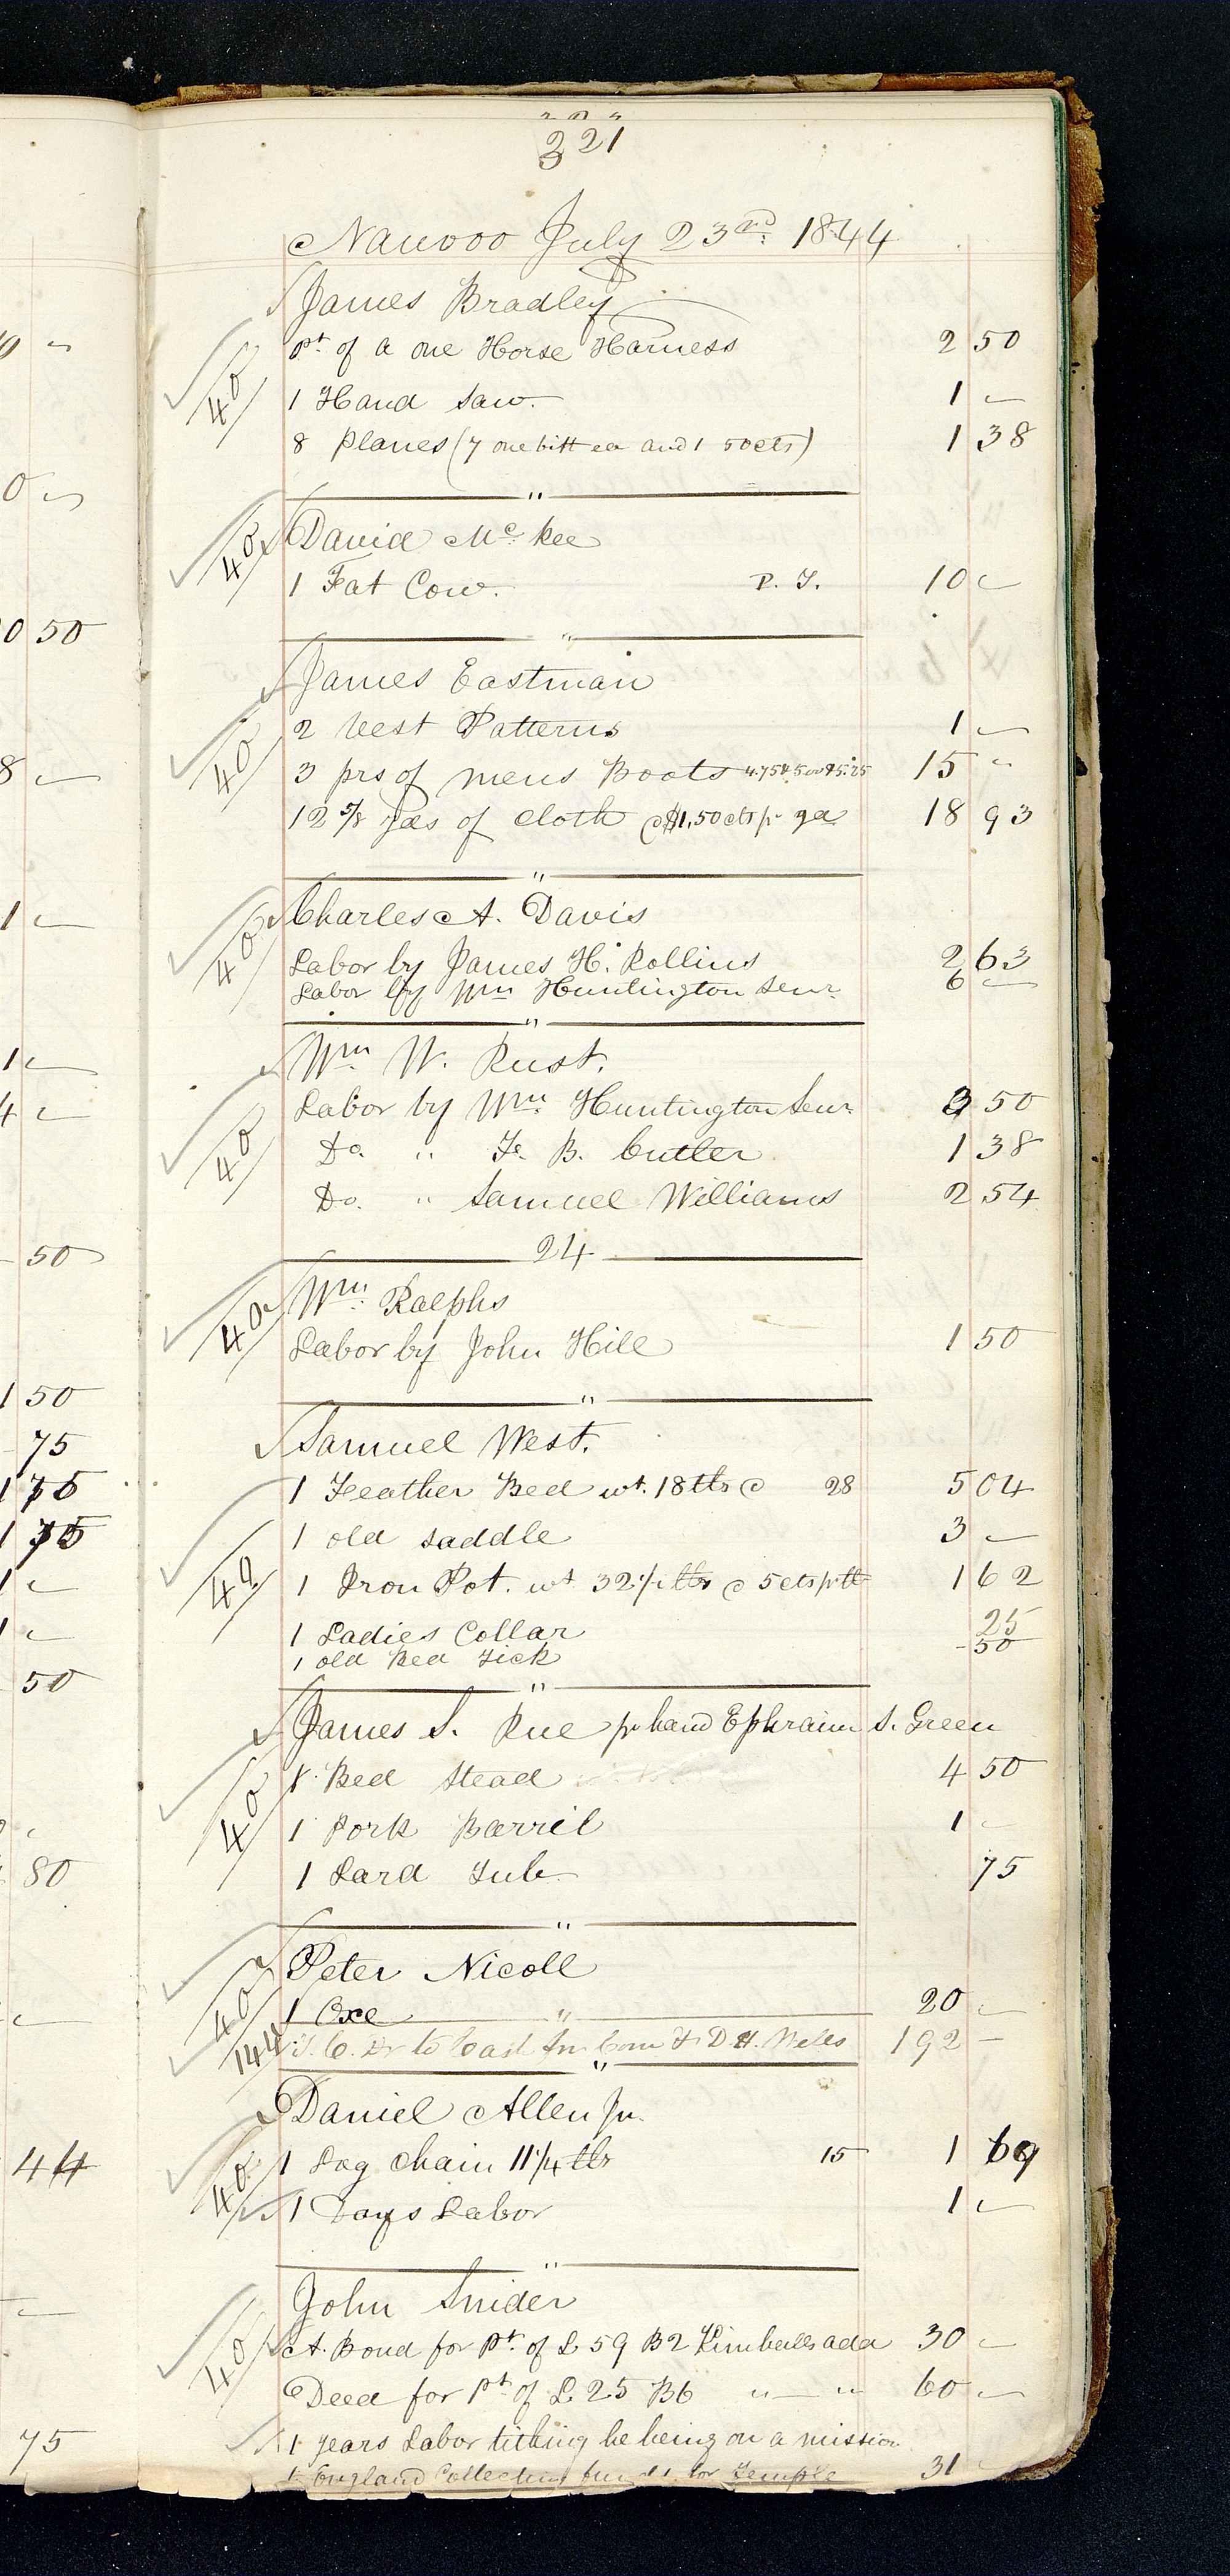 321
Nauvoo July 23rd. 1844
James Bradley
40 pt. of a one Horse Harness 2 50
1 Hand Saw. 1 —
8 Planes (7 one bitt ea and 1 50cts) 1 38
"
40 David Mc. Kee
1 Fat Cow. P. T. 10 —
"
James Eastman
40 2 Vest Patterns 1 —
3 prs of mens Boots 4.75 & 5.00 & 5.25 15 "
12 5/8 yds of cloth @ $1,50 cts pr yd 18 93
"
40 Charles A. Davis
Labor by James H. Rollins 2 63
Labor by Wm Huntington Senr. 6 —
"
Wm. W. Rust.
40 Labor by Wm. Huntington Senr. 3 50
Do. " F. B. Cutler 1 38
Do. " Samuel Williams 2 54
24
40 Wm. Ralphs
Labor by John Hill 1 50
"
Samuel West.
1 Feather Bed wt. 18 lbs @ 28 5 04
1 old Saddle 3 —
40 1 Iron Pot. wt 32 1/2 lbs @ 5 cts pr lb 1 62
1 Ladies Collar 25
1 old Bed Tick - 50
"
James S. Rue pr hand Ephraim S. Green
40 1 Bed Stead 4 50
1 Pork Barril 1 —
1 Lard Tub 75
"
40 Peter Nicoll
1 Oxe 20 —
"
144 T. C. Dr to Cash Com & D. H. Wells 192 —
"
Daniel Allen Jn.
40 1 Log Chain 11 1/4 lbs 15 1 69
1 Days Labor 1 —
"
John Snider
40 A. Bond for pt. of L 59 B2 Kimballs add 30 —
Deed for Pt of L. 25 B6 " — " 60 —
1 years Labor tithing he being on a mission
to England Collecting funds for Temple 31
0 50
8 —
1 —
1 —
4 —
50
1 50
75
1 75
1 75
1 —
1 —
50
80
44
75